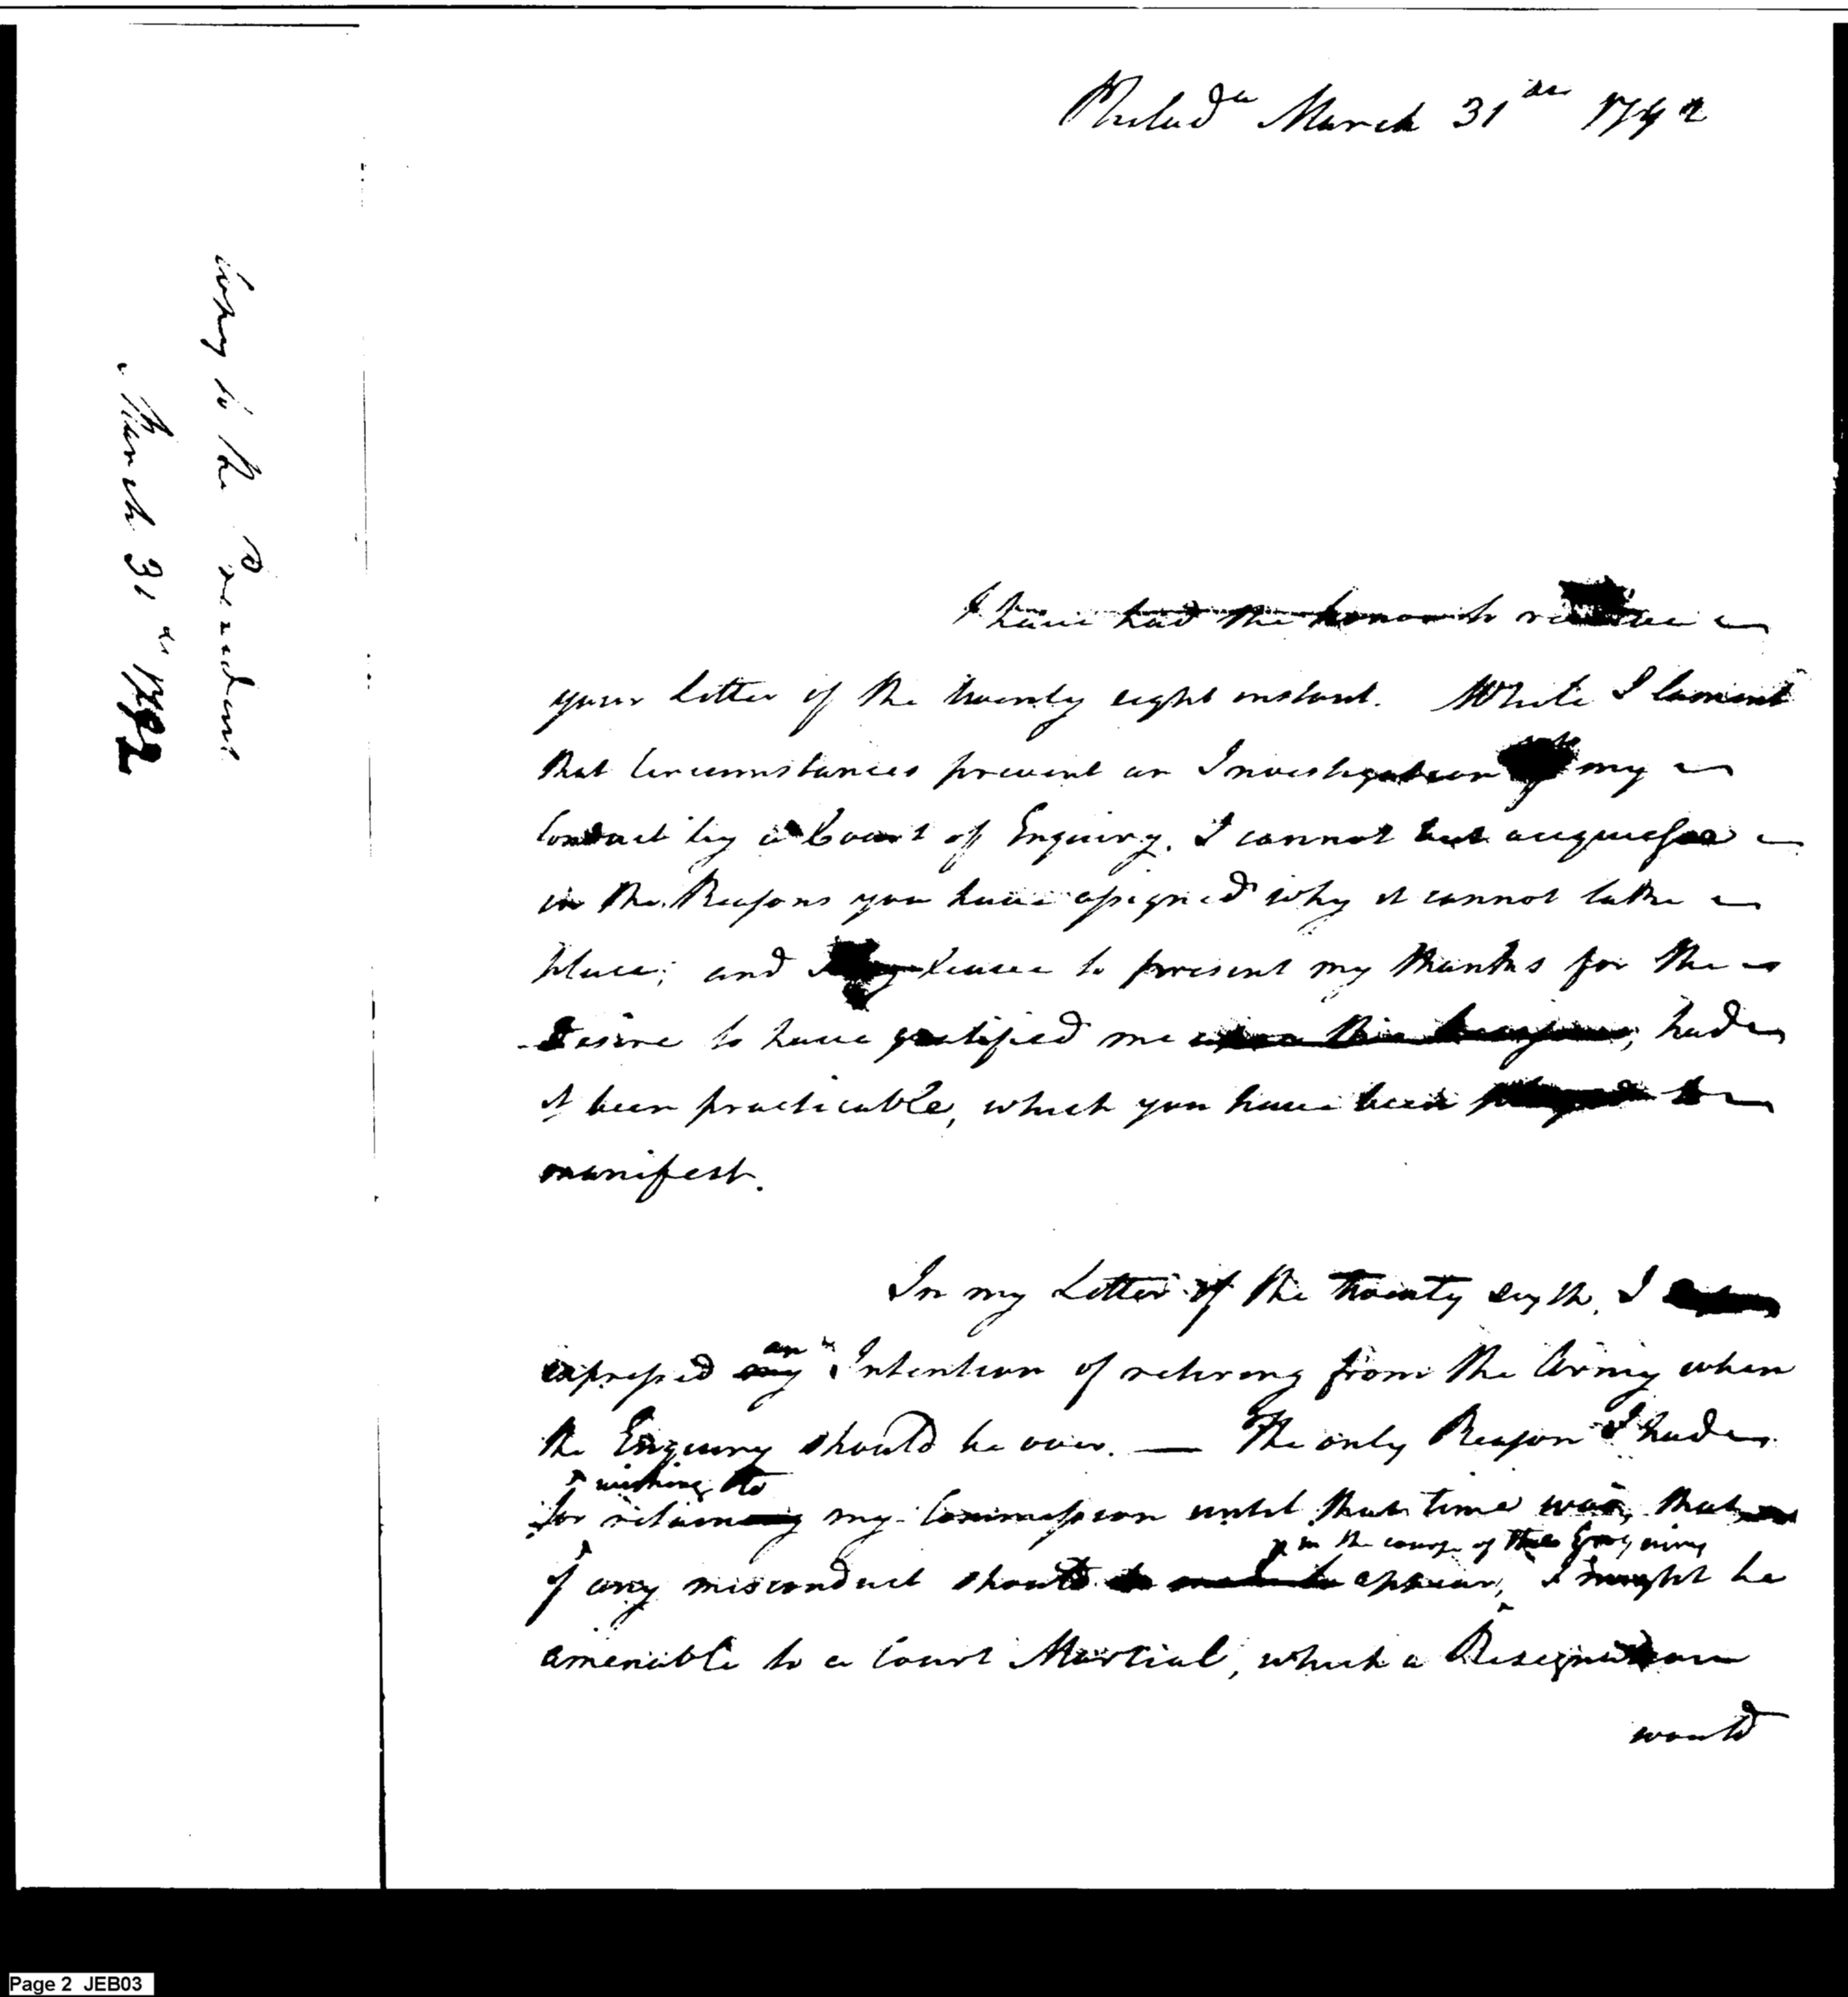 Philad.a March 31st 1792
Copy to the President
March 31st 1792
I have had the honor to receive
your letter of the twenty eight instant. While I lament
that Circumstances prevent an Investigation of my
Conduct by a Court of Enquiry, I cannot but acquiesce
in the Reasons you have assigned why it cannot take
place; and beg leave to present my thanks for the
desire to have gratified me upon this, had
it been practicable, which you have been pleased to
manifest.
In my Letter of the twenty sixth, I
expressed my an Intention of retiring from the Army when
the Enquiry should be over. — The only Reason I had
wishing to
for retaining my Commission until that time was, that
in the course of the Enquiry
if any misconduct should appear, I might be
amenable to a Court Martial, which a Resignation
would
Page 2 JEB03